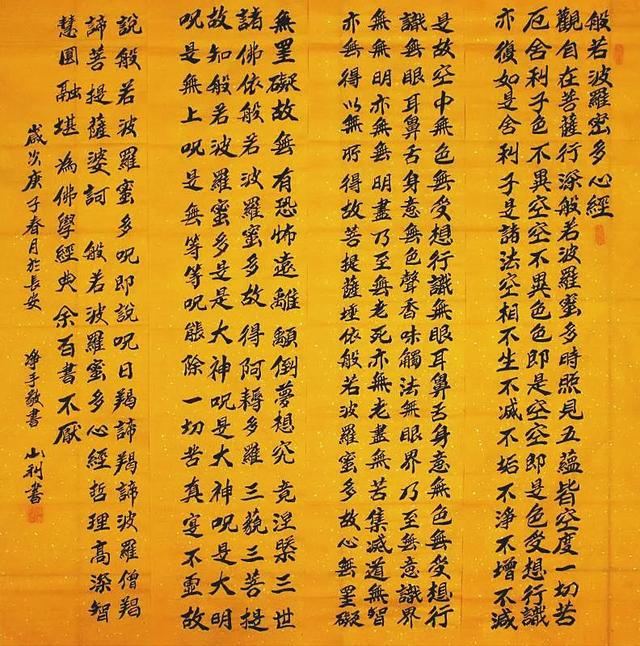 般若波羅蜜多心經
觀自在菩薩行深般若波羅蜜多時照見五蘊皆空度一切苦
厄舍利子色不異空空不異色色即是空空即是色受想行識
亦復如是舍利子是諸法空相不生不減不垢不淨不增不減
是故空中無色無受想行識無眼耳鼻舌身意無色無受想行
識無眼耳鼻舌身意無色聲香味觸法無眼界乃至無意識界
無無明亦無無明盡乃至無老死亦無老盡無苦集減道無智
亦無得以無所得故菩提薩埵依般若波羅蜜多故心無罣礙
無罣礙故無有恐怖遠離顛倒夢想究竟涅槃三世
諸佛依般若波羅蜜多故得阿耨多羅三藐三菩提
故知般若波羅蜜多是是大神呪是大神呪是大明
呪是無上呪是無等等呪能除一切苦真实不虛故
說般若波羅蜜多呪即說呪曰羯諦羯諦波羅僧羯
諦菩提薩婆訶 般若波羅蜜多心經哲理高深智
慧圓融堪為佛學經典 余百書不厭
歲次庚子春月於長安 净手敬書 山利書